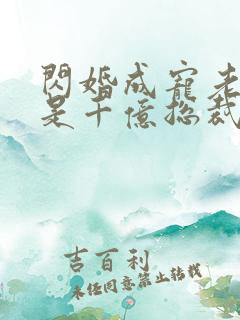 閃婚成寵老
是千億總裁
吉百利
未經同意禁止轉載